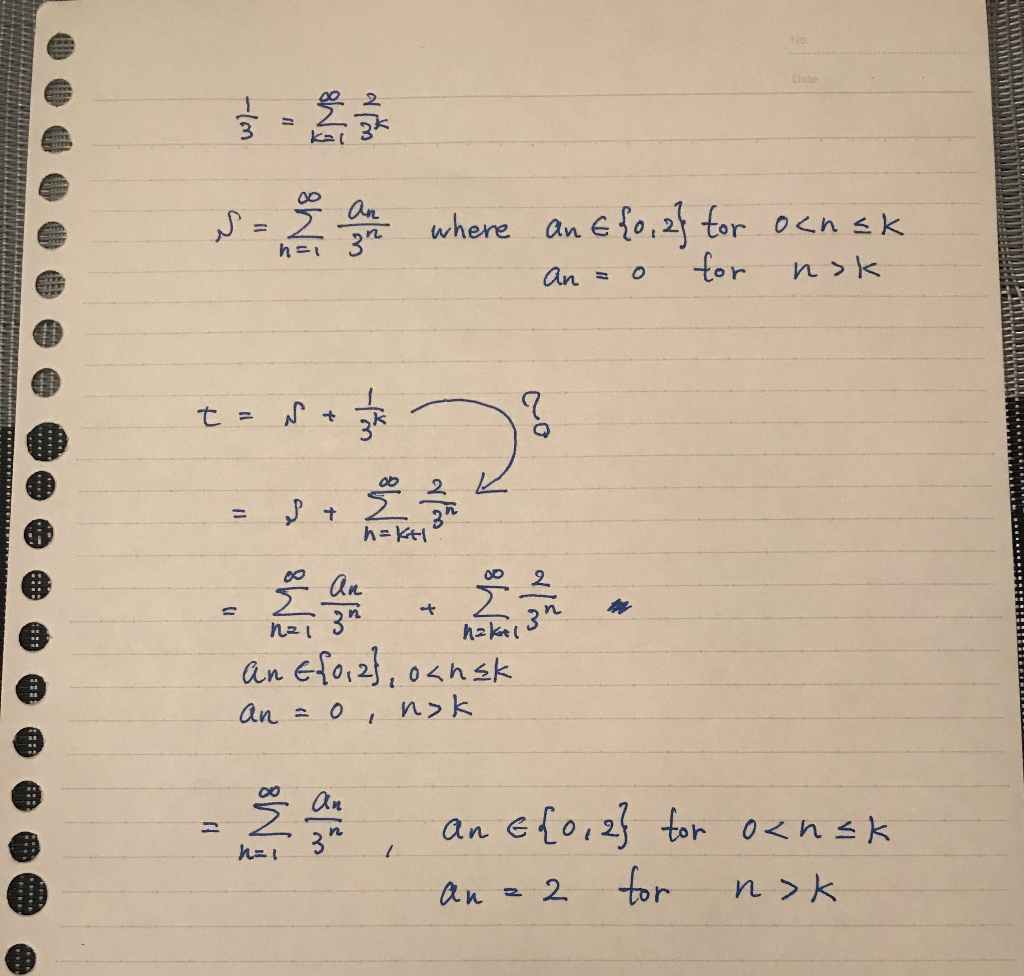 No.
Date
1/3 = ∞Σk=1 2/3^k
S = ∞Σn=1 an/3^n where an ∈ {0,2} for 0<n≤k
an = 0 for n>k
t = S + 1/3^k ?
= S + ∞Σn=k+1 2/3^n
= ∞Σn=1 an/3^n + ∞Σn=k+1 2/3^n
an ∈ {0,2}, 0<n≤k
an = 0, n>k
= ∞Σn=1 an/3^n, an ∈ {0,2} for 0<n≤k
an = 2 for n>k